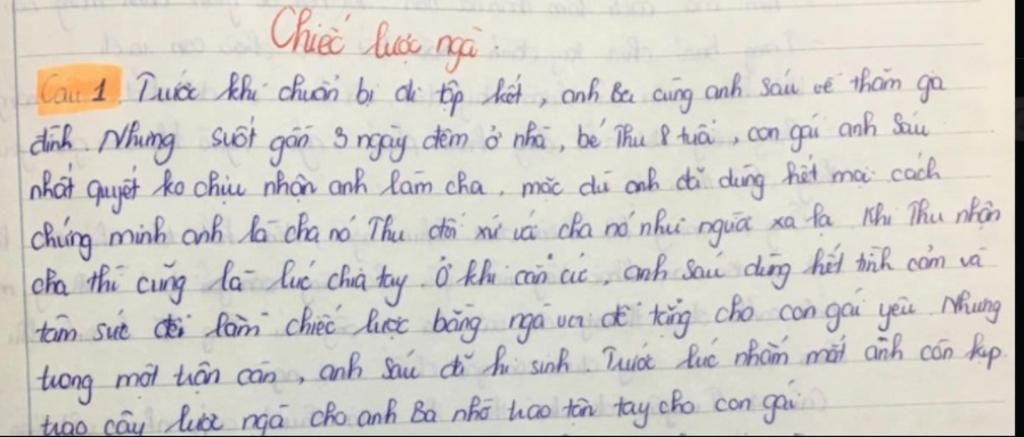 Chiếc lược ngà.
Câu 1. Trước khi chuẩn bị đi tập kết, anh Ba cùng anh Sáu về thăm gia
đình. Nhưng suốt gần 3 ngày đêm ở nhà, bé Thu 8 tuổi, con gái anh Sáu
nhất quyết ko chịu nhận anh làm cha, mặc dù anh đã dùng hết mọi cách
chứng minh anh là cha nó Thu đối xử với cha nó như người xa lạ Khi Thu nhận
cha thì cũng là lúc chia tay. Ở khu căn cứ, anh Sáu dùng hết tình cảm và
tâm sức để làm chiếc lược bằng ngà voi để tặng cho con gái yêu. Nhưng
trong một trận càn, anh Sáu đã hi sinh. Trước lúc nhắm mắt anh còn kịp
trao cây lược ngà cho anh Ba nhờ trao tận tay cho con gái